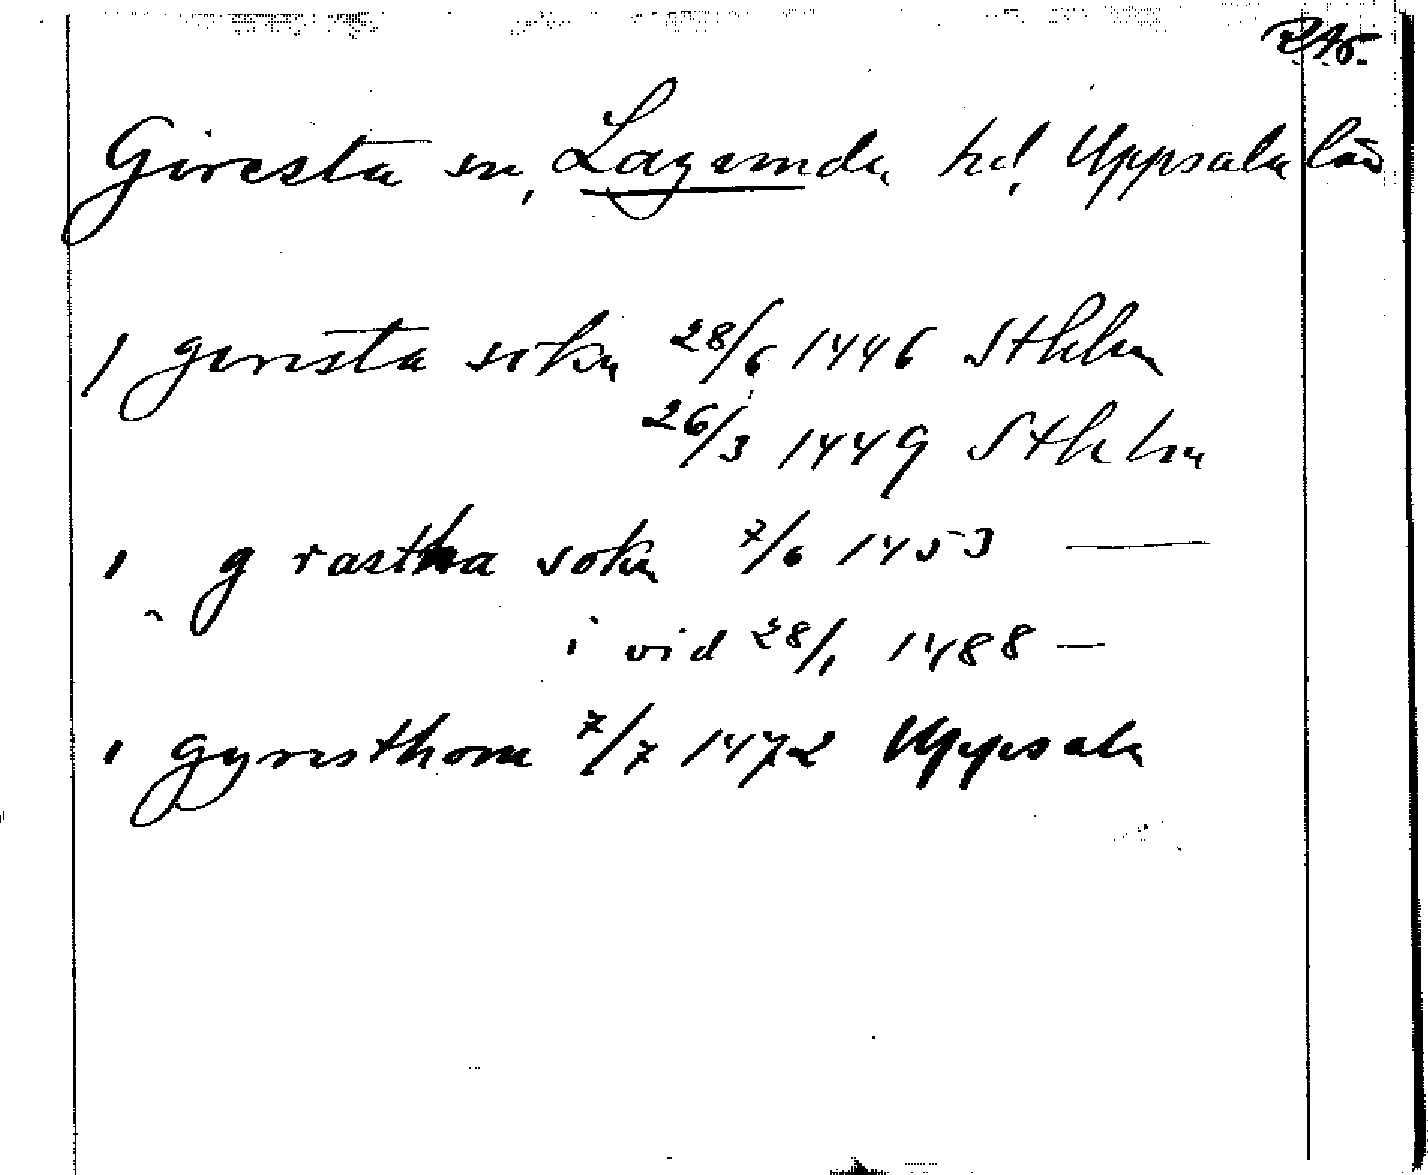 RAp.
Giresta sn, Lagunda hd, Uppsala län
1 girista sokn 28/6 1446 Sthlm
26/3 1449 Sthlm
ı g rastha sokn 7/6 1453 —
i vid 28/1 1488 —
ı gyristhom 7/7 1472 Uppsala